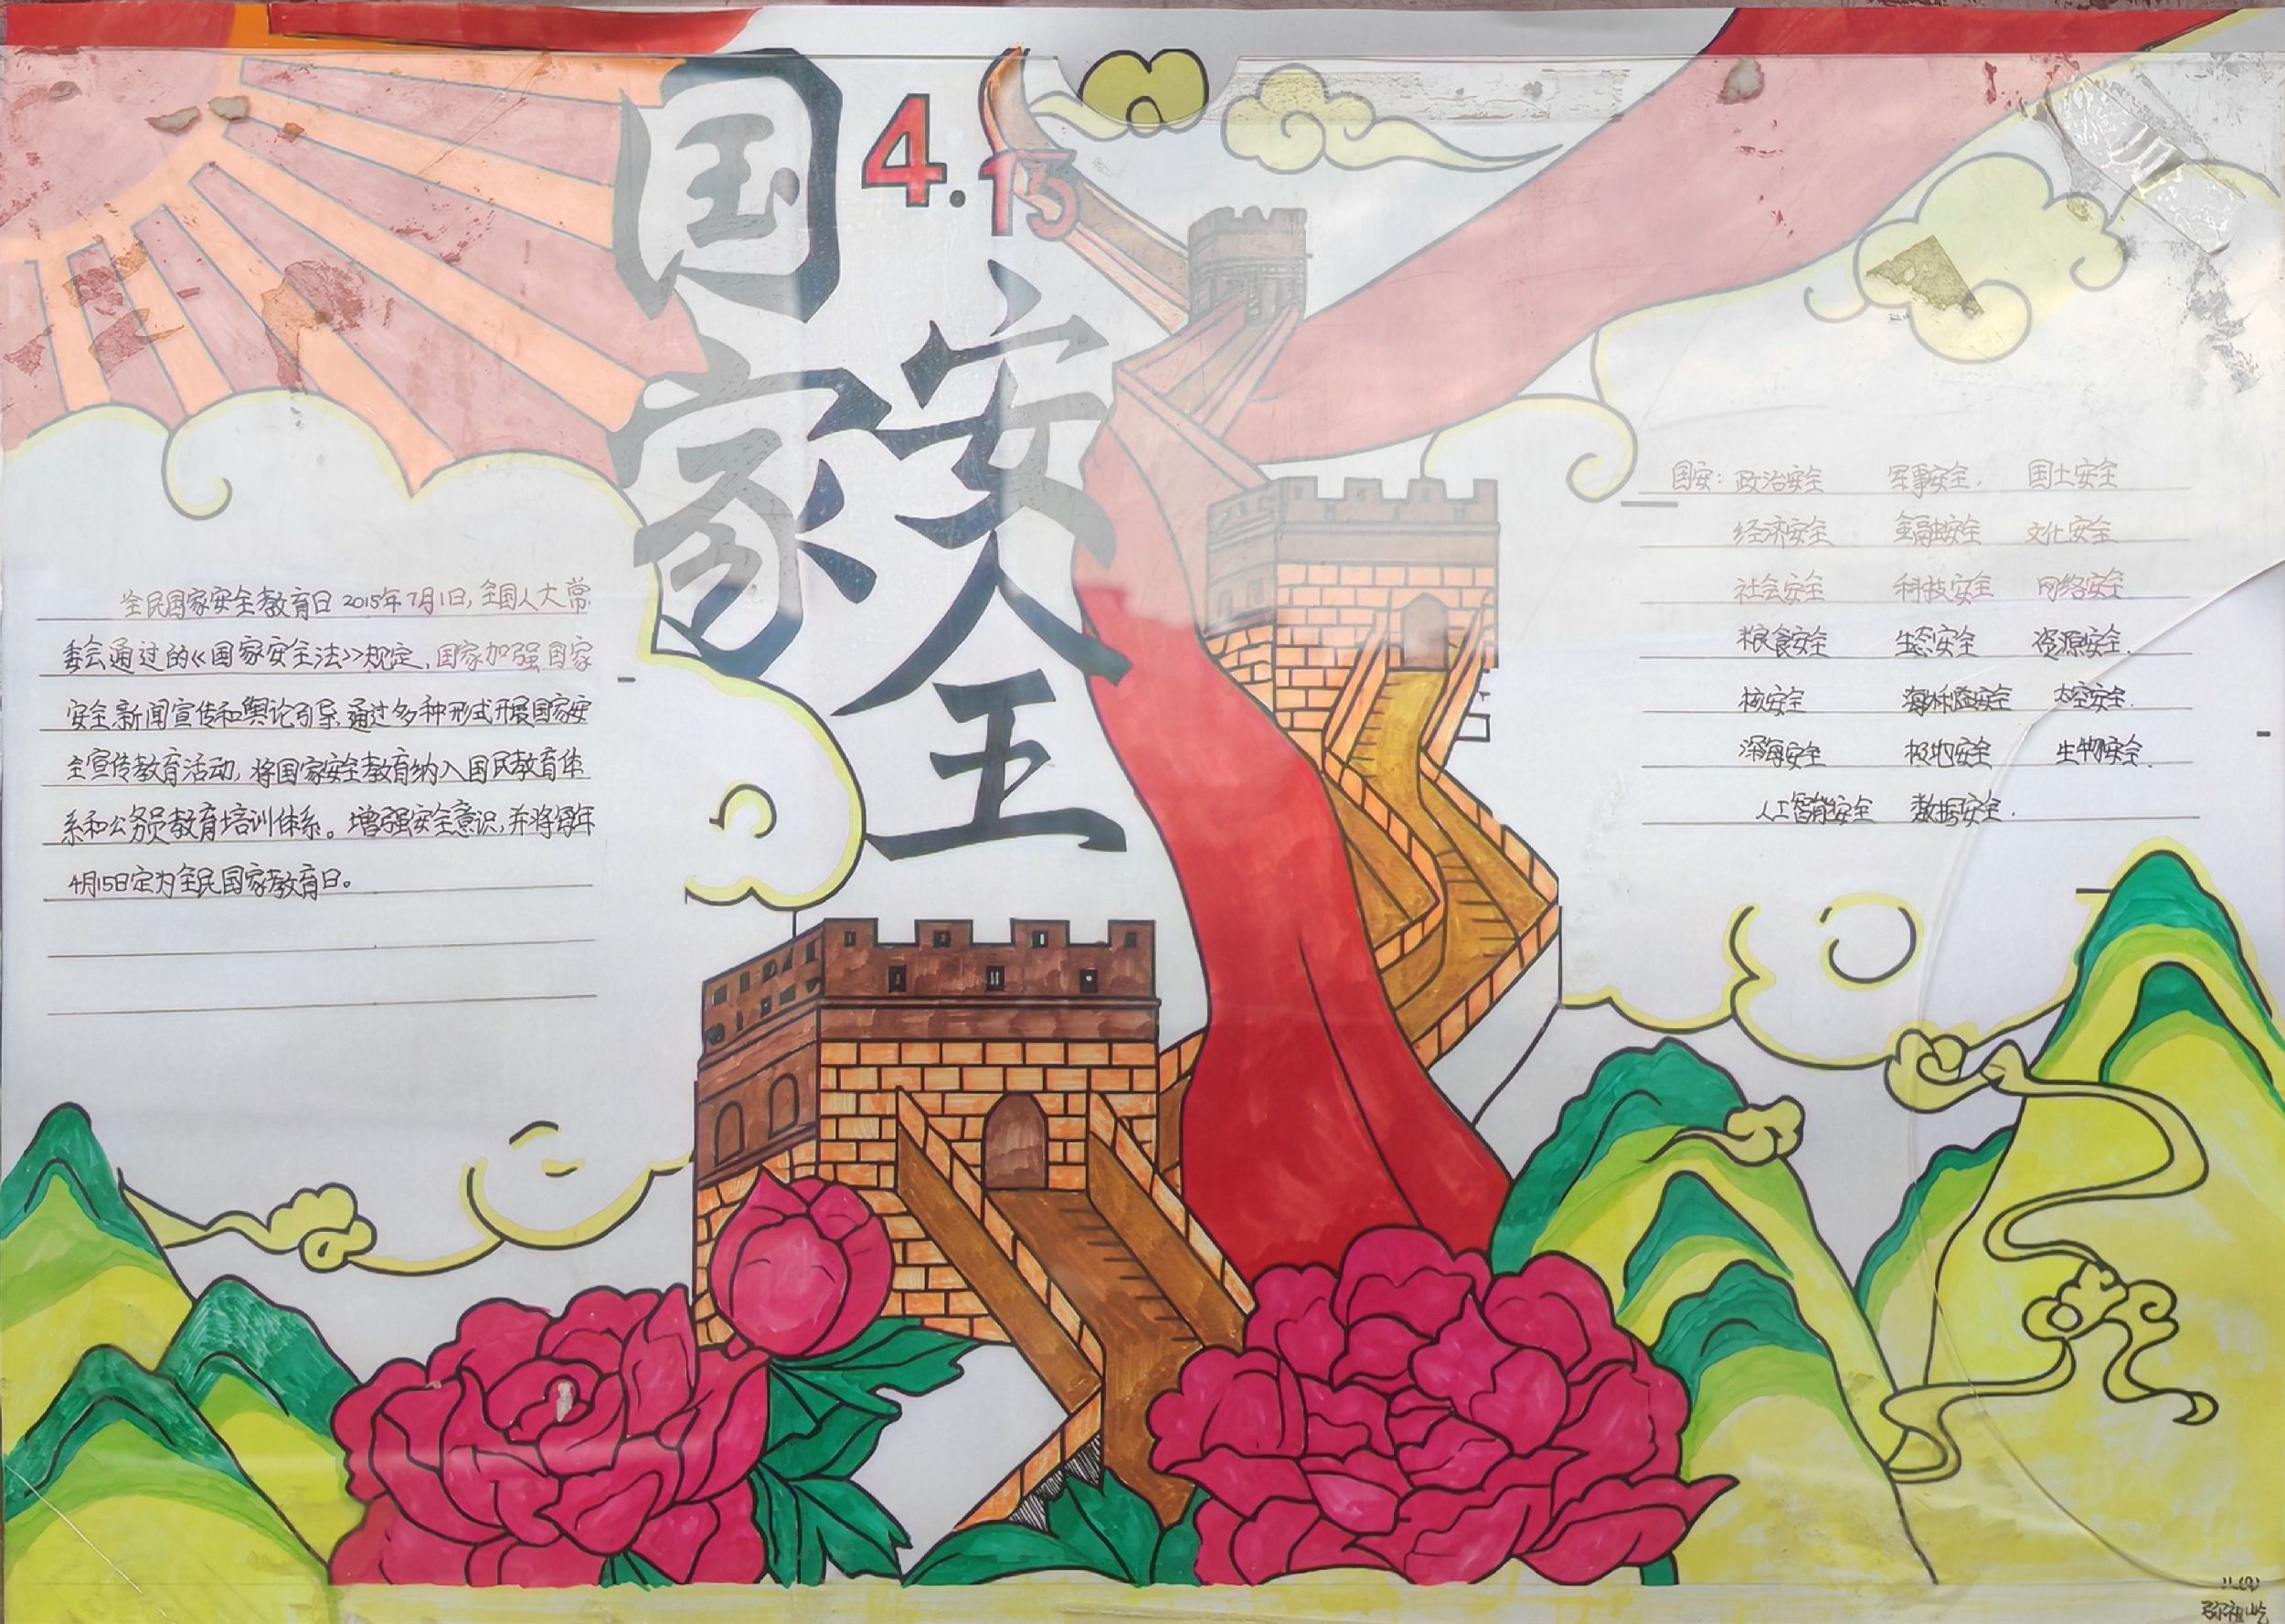 国家安全
4.15
全民国家安全教育日 2015年7月1日,全国人大常
委会通过的《国家安全法》规定,国家加强国家
安全新闻宣传和舆论引导,通过多种形式开展国家安
全宣传教育活动,将国家安全教育纳入国民教育体
系和公务员教育培训体系。增强安全意识,并将每年
4月15日定为全民国家教育日。
国安:政治安全 军事安全, 国土安全
经济安全 金融安全 文化安全
社会安全 科技安全 网络安全
粮食安全 生态安全 资源安全.
核安全 海外利益安全 太空安全.
深海安全 极地安全 生物安全.
人工智能安全 数据安全.